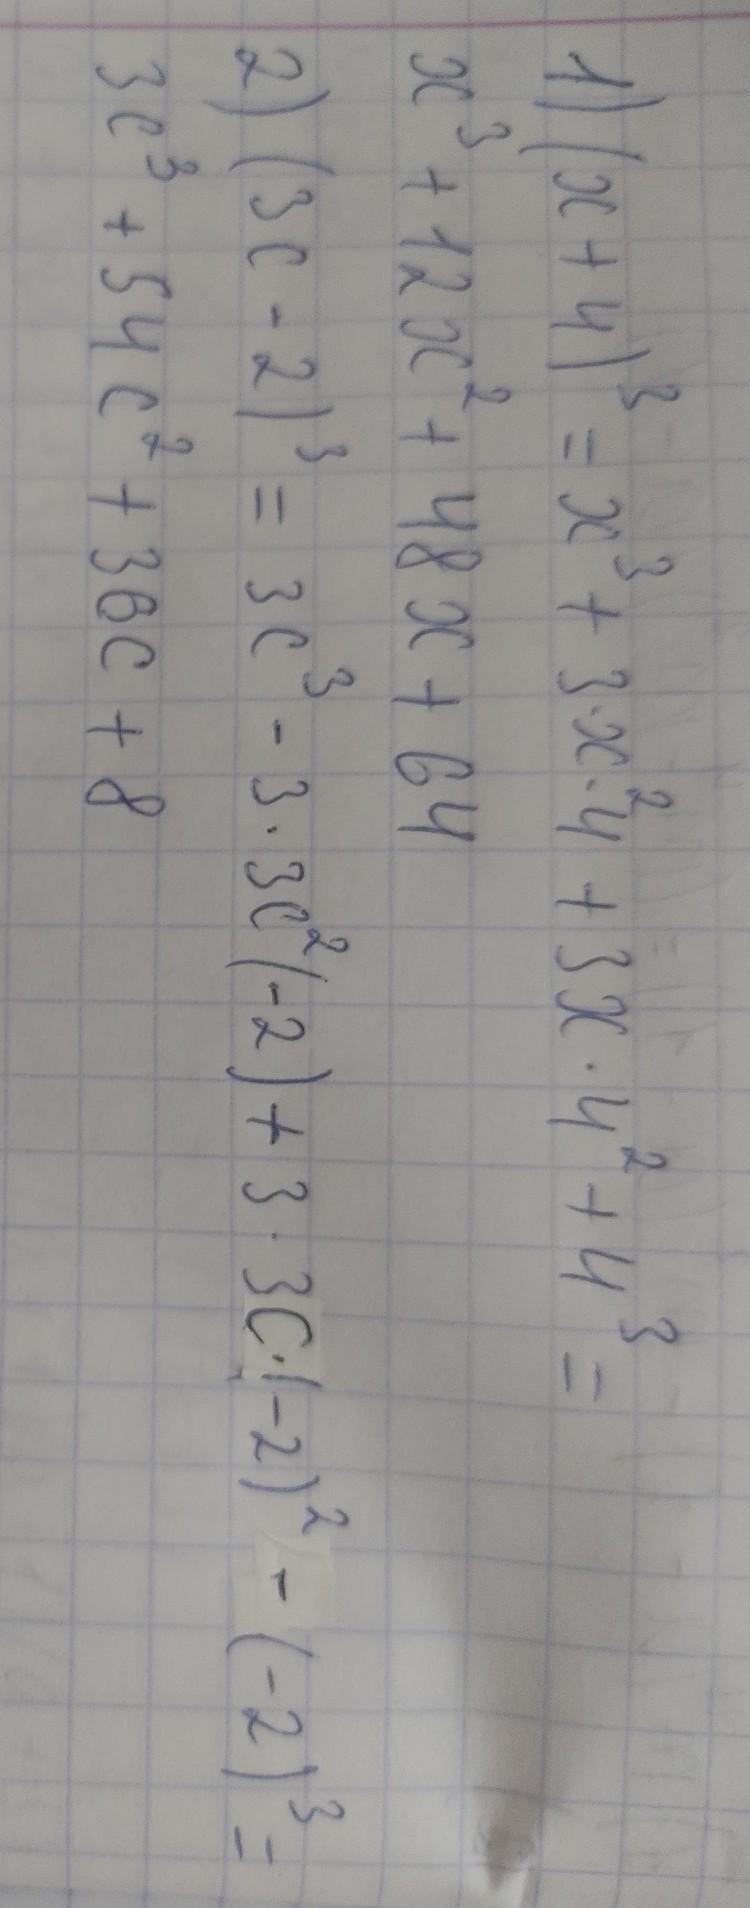 1) (x+4)³ = x³ + 3·x²·4 + 3x·4² + 4³ =
x³ + 12x² + 48x + 64
2) (3c - 2)³ = 3c³ - 3·3c²(-2) + 3·3c·(-2)² - (-2)³ =
3c³ + 54c² + 36c + 8